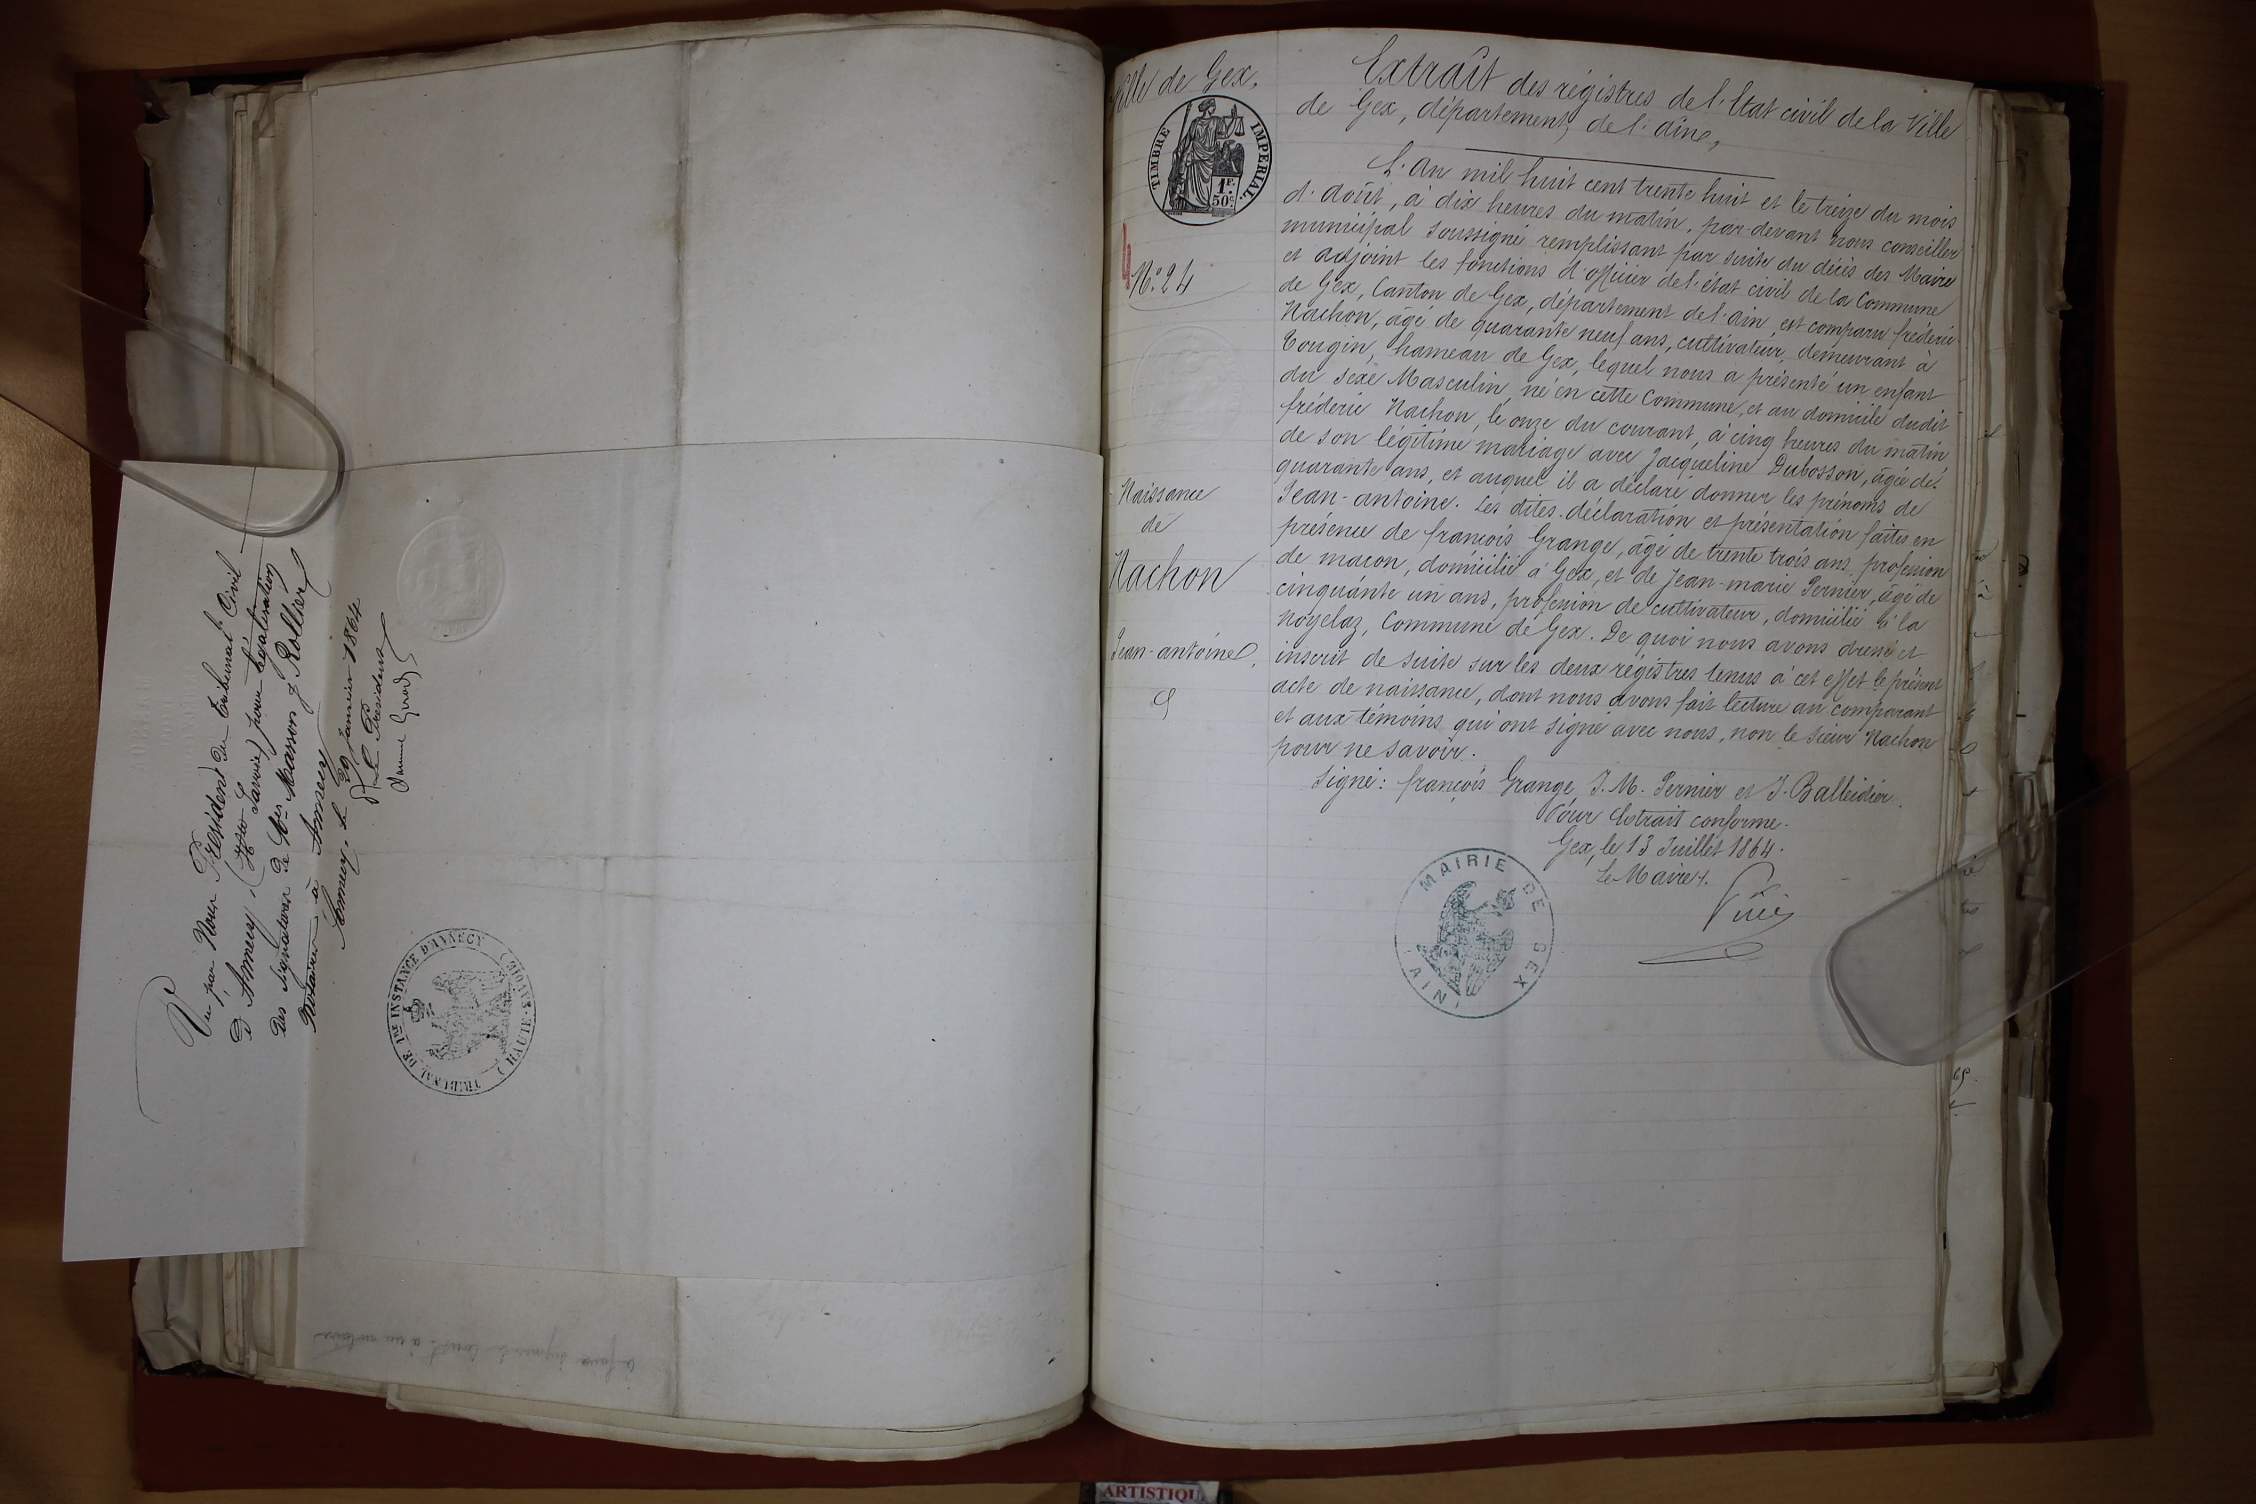 Vu par Nous Président du Tribunal Civil
d'Annecy (Hte Savoie) pour légalisation
des signatures de Mes Masson & Rollier
Notaires à Annecy
Annecy, le 29 Janvier 1864
Le Président
TRIBUNAL DE 1RE INSTANCE D'ANNECY
(HAUTE-SAVOIE)
Ville de Gex,
TIMBRE IMPÉRIAL
1F.
50c.
N.o 24
Naissance
de
Nachon
Jean-antoine,
Extrait des régistres de l'Etat civil de la Ville
de Gex, département de l'ain,
L'An mil huit cent trente huit et le treize du mois
d'août, à dix heures du matin, par-devant nous conseiller
municipal soussigné remplissant par suite du décès des Maire
et adjoint les fonctions d'officier de l'état civil de la Commune
de Gex, Canton de Gex, département de l'ain, est comparu fréderic
Nachon, âgé de quarante neuf ans, cultivateur, demeurant à
Tougin, hameau de Gex, lequel nous a présenté un enfant
du sexe Masculin, né en cette Commune, et au domicile dudit
fréderic Nachon, le onze du courant, à cinq heures du matin
de son légitime mariage avec Jacqueline Dubosson, âgée de
quarante ans, et auquel il a déclaré donner les prénoms de
Jean-antoine. Les dites déclaration et présentation faites en
présence de francois Grange, âgé de trente trois ans, profession
de macon, domicilié à Gex, et de Jean-marie Pernier, âgé de
cinquante un ans, profession de cultivateur, domicilié à la
Noyelaz, Commune de Gex. De quoi nous avons dressé et
inscrit de suite sur les deux régistres tenus à cet effet le présent
acte de naissance, dont nous avons fait lecture au comparant
et aux témoins qui ont signé avec nous, non le sieur Nachon
pour ne savoir.
Signé: françois Grange, J. M. Pernier et J. Balleidier.
Pour Extrait conforme.
Gex, le 13 Juillet 1864.
Le Maire.
MAIRIE DE GEX
(AIN)
ARTISTIQU